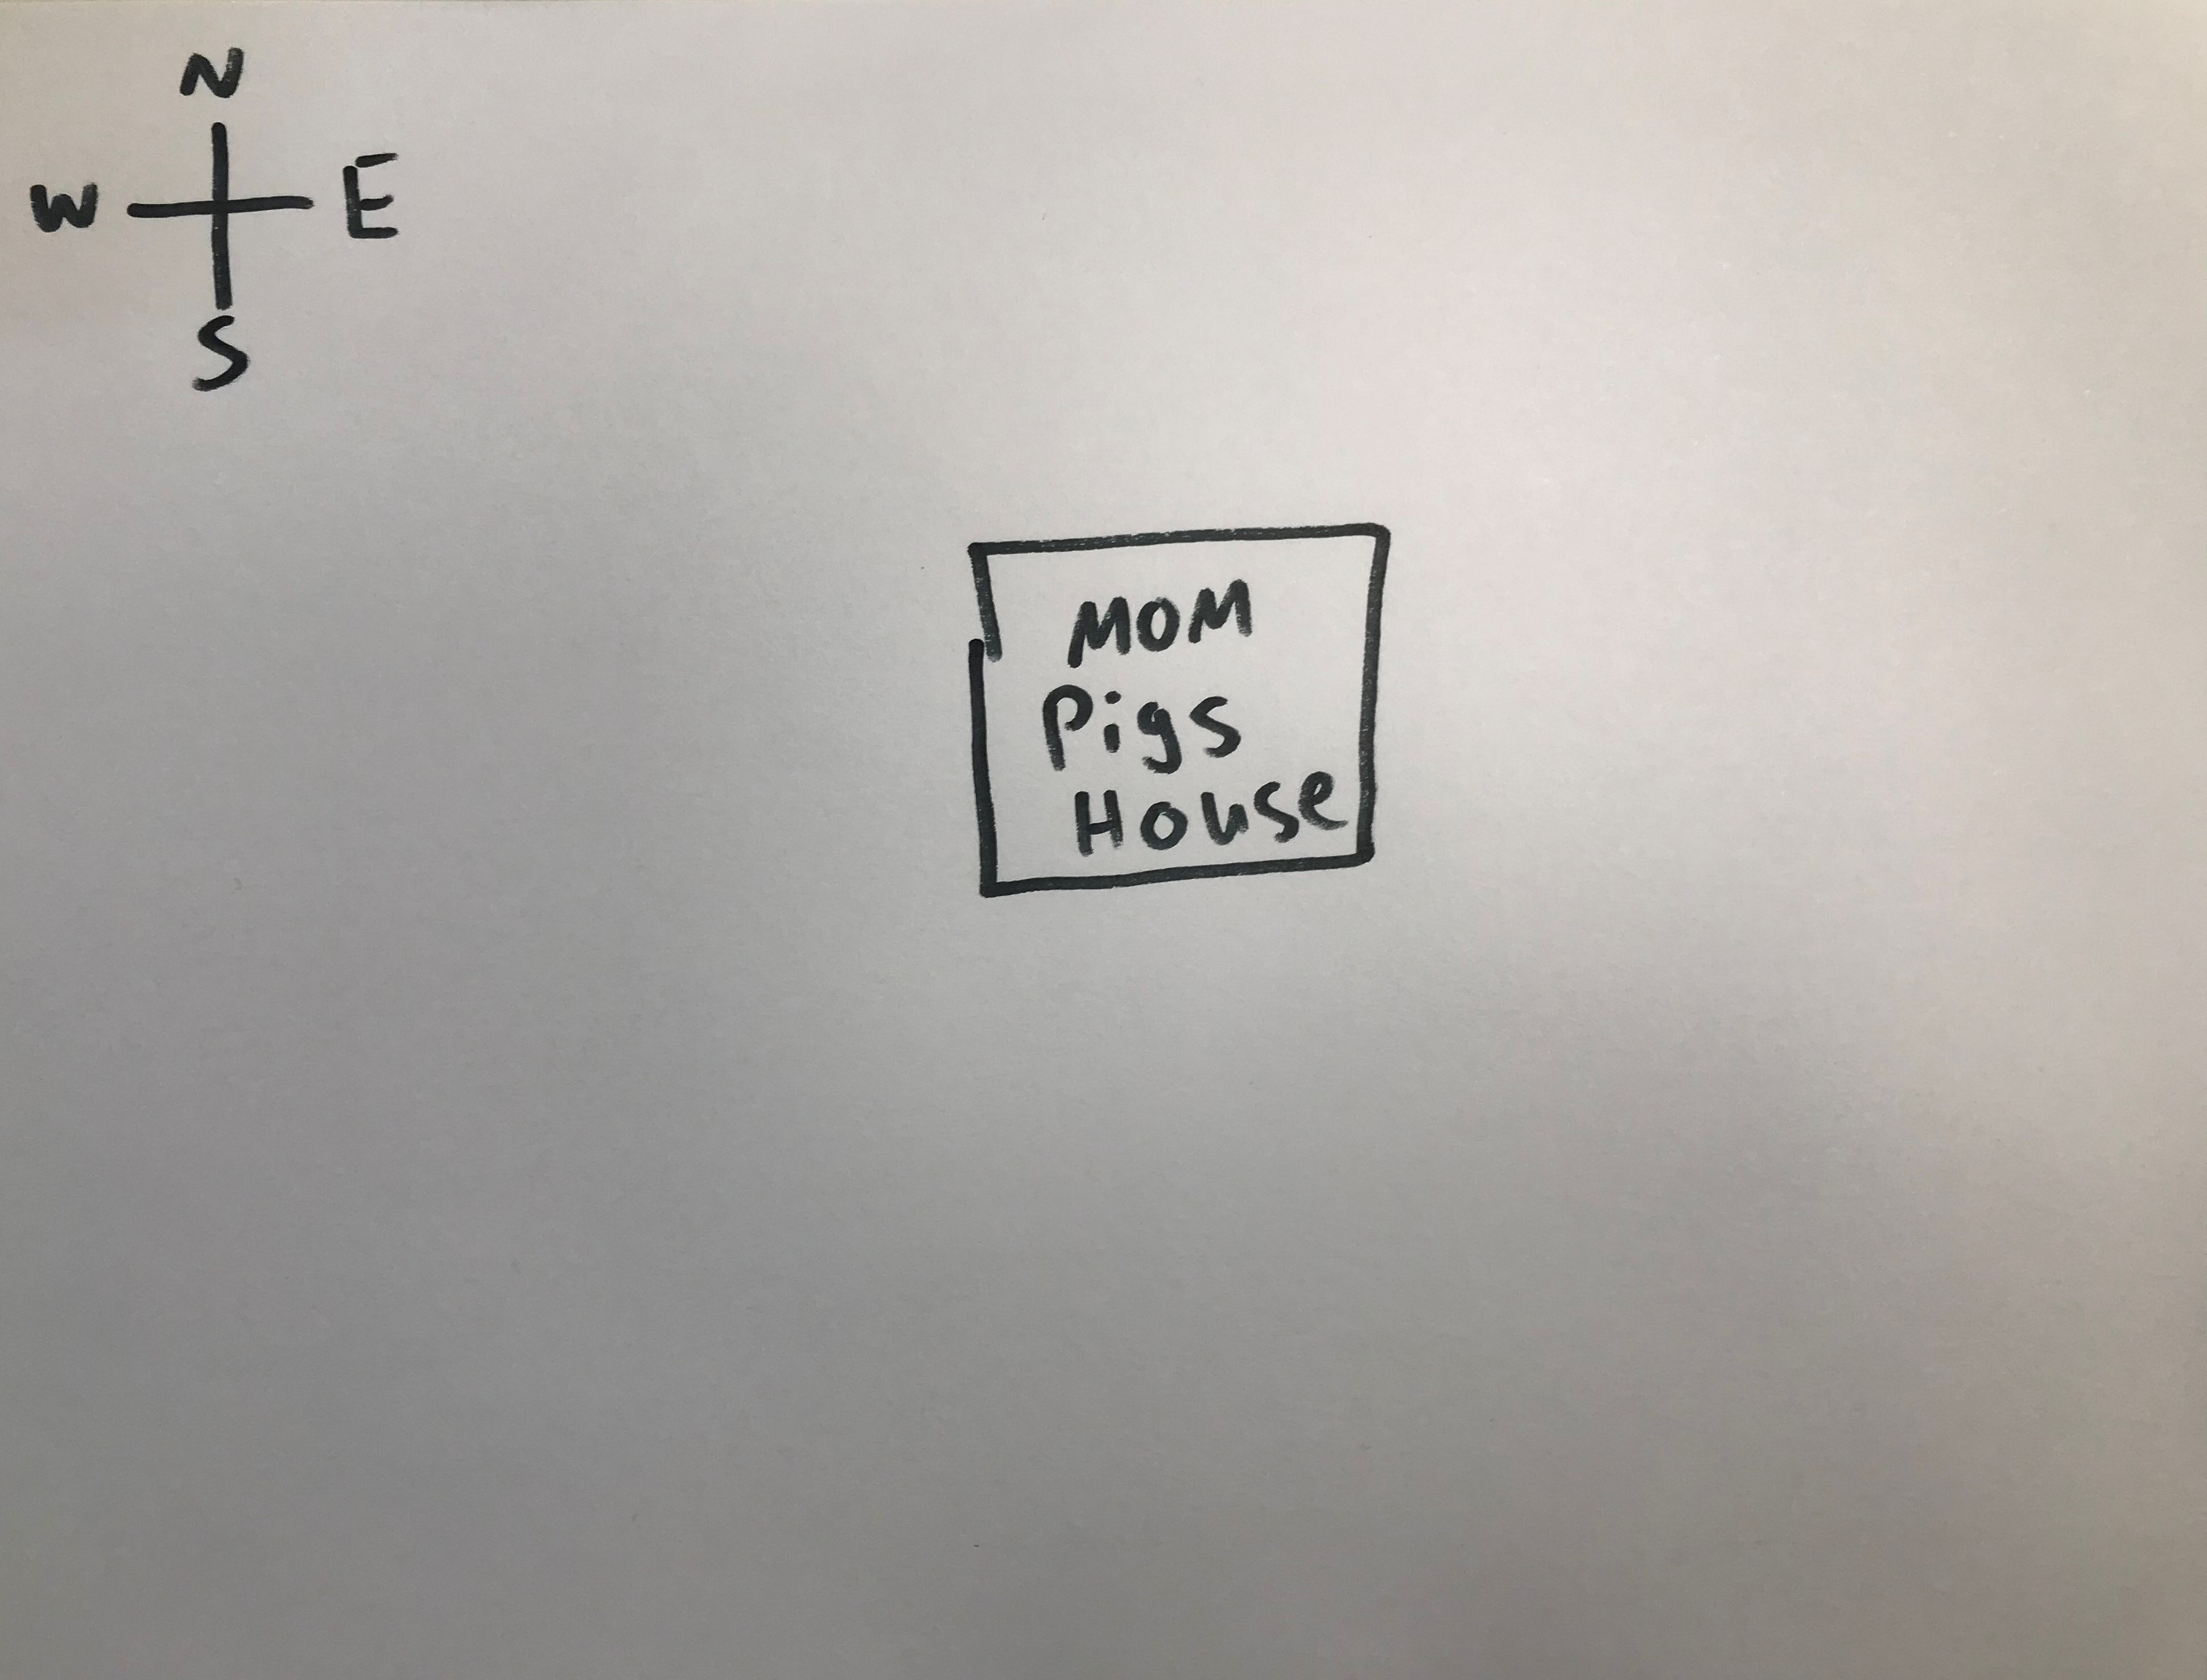 N
W E
S
MOM
Pigs
House